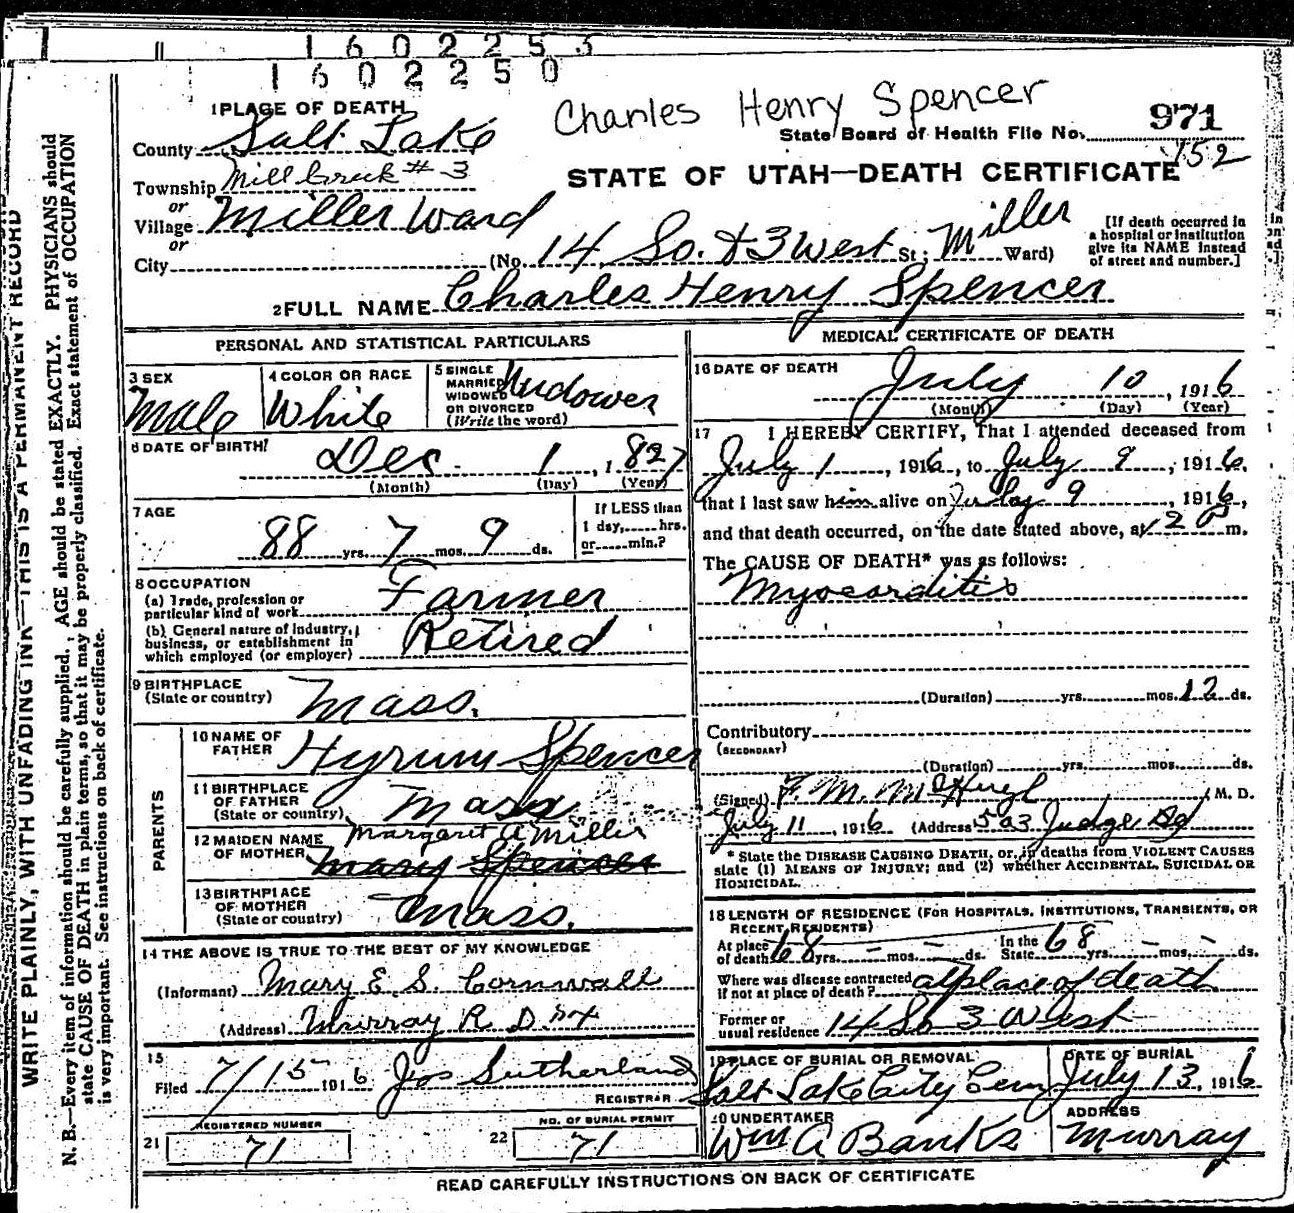 1602253
1602250
Charles Henry Spencer
1 PLACE OF DEATH
State Board of Health File No. 971
152
County Salt Lake
STATE OF UTAH—DEATH CERTIFICATE
Township Mill Creek # 3
or
Village Miller Ward
or
City (No. 14 So. & 3 West St; Miller Ward)
[If death occurred in a hospital or institution give its NAME instead of street and number.]
2 FULL NAME Charles Henry Spencer
PERSONAL AND STATISTICAL PARTICULARS
3 SEX Male
4 COLOR OR RACE White
5 SINGLE MARRIED WIDOWED OR DIVORCED (Write the word) Widower
6 DATE OF BIRTH Dec 1, 1827
(Month) (Day) (Year)
7 AGE 88 yrs. 7 mos. 9 ds.
If LESS than 1 day, hrs. or min.?
8 OCCUPATION
(a) Trade, profession or particular kind of work Farmer
(b) General nature of industry, business, or establishment in which employed (or employer) Retired
9 BIRTHPLACE (State or country) Mass.
PARENTS
10 NAME OF FATHER Hyrum Spencer
11 BIRTHPLACE OF FATHER (State or country) Mass
12 MAIDEN NAME OF MOTHER Margaret A Miller
Mary Spencer
13 BIRTHPLACE OF MOTHER (State or country) Mass.
14 THE ABOVE IS TRUE TO THE BEST OF MY KNOWLEDGE
(Informant) Mary E. S. Cornwall
(Address) Murray R. D. #4
15
Filed 7/15 1916 Jos Sutherland
REGISTRAR
21 REGISTERED NUMBER 71
22 NO. OF BURIAL PERMIT 71
MEDICAL CERTIFICATE OF DEATH
16 DATE OF DEATH July 10, 1916
(Month) (Day) (Year)
17 I HEREBY CERTIFY, That I attended deceased from
July 1, 1916, to July 9, 1916,
that I last saw him alive on July 9, 1916,
and that death occurred, on the date stated above, at 12 P m.
The CAUSE OF DEATH* was as follows:
Myocarditis
(Duration) yrs. mos. 12 ds.
Contributory
(SECONDARY)
(Duration) yrs. mos. ds.
(Signed) F. M. McHugh M. D.
July 11, 1916 (Address 503 Judge Bd
* State the DISEASE CAUSING DEATH, or, in deaths from VIOLENT CAUSES
state (1) MEANS OF INJURY; and (2) whether ACCIDENTAL, SUICIDAL OR
HOMICIDAL.
18 LENGTH OF RESIDENCE (FOR HOSPITALS, INSTITUTIONS, TRANSIENTS, OR
RECENT RESIDENTS)
At place of death 68 yrs. – mos. – ds. In the State 68 yrs. – mos. – ds.
Where was disease contracted if not at place of death? at place of death
Former or usual residence 14 So 3 West
19 PLACE OF BURIAL OR REMOVAL Salt Lake City Cem
DATE OF BURIAL July 13, 1916
20 UNDERTAKER Wm A Banks
ADDRESS Murray
READ CAREFULLY INSTRUCTIONS ON BACK OF CERTIFICATE
WRITE PLAINLY, WITH UNFADING INK—THIS IS A PERMANENT RECORD
N. B.—Every item of information should be carefully supplied. AGE should be stated EXACTLY. PHYSICIANS should
state CAUSE OF DEATH in plain terms, so that it may be properly classified. Exact statement of OCCUPATION
is very important. See instructions on back of certificate.